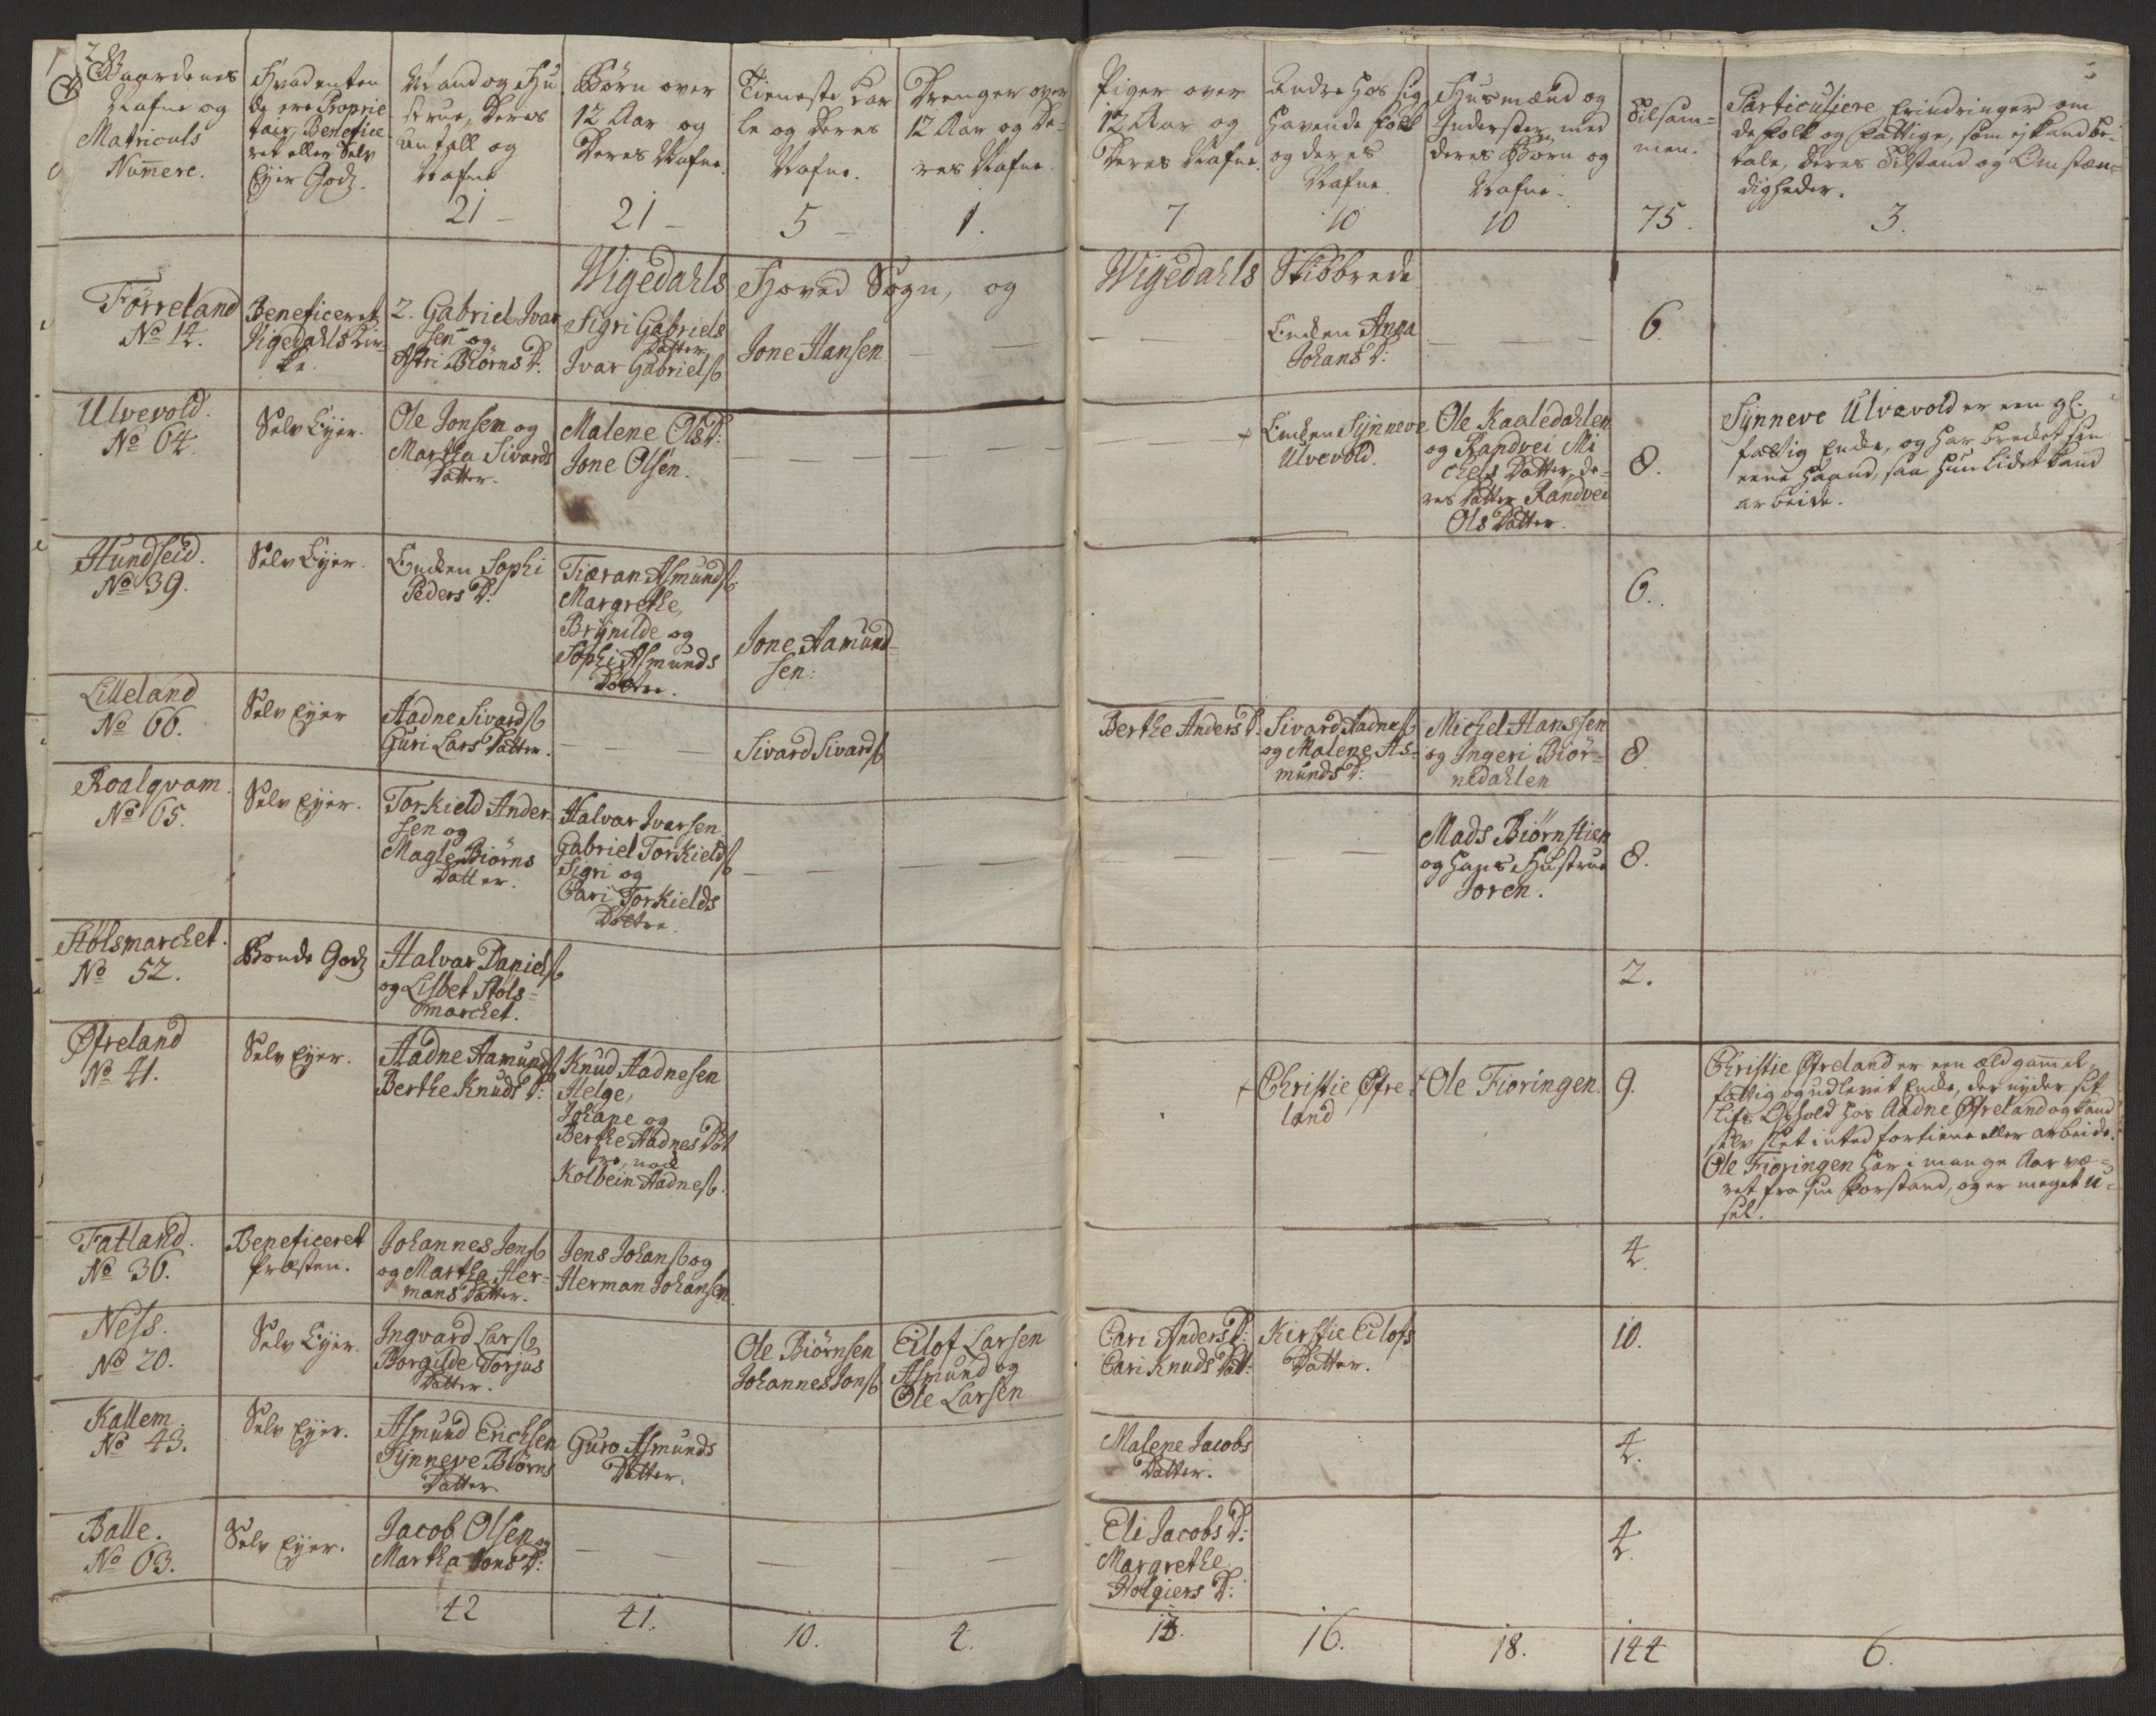 Gaardenes
Nafne og
Matriculs
Numere.
Hvad enten
de ere Proprie
tair, Benefice
ret eller Selv
Ejer Godz.
Mand og Hu
strue, Deres
Antall og
Nafne
Børn over
12 Aar og
Deres Nafne.
Tieneste Kar
le og Deres
Nafne.
Drenger over
12 Aar og De-
res Nafne.
Piger over
12 Aar og
Deres Nafne.
Andre hos sig
havende folk
og deres
Nafne
Husmænd og
Inderster med
deres Børn og
Nafne.
Tilsam-
men.
Particuliere Erindringer om
de folk og fattige, som ej kand be-
tale, deres Tilstand og Omstæn-
digheder.
21 21 5 1. 7 10 10 75. 3.
Wigedahls Hoved Sogn, og Wigedahls Skibbrede
Førreland
No 14.
Beneficeret
Vigedahls Kir-
ke.
2. Gabriel Ivar
sen og
Astri Biørns D.
Sigri Gabriels
Datter
Ivar Gabriels
Jone Hansen
Enken Anna
Johans D:
6.
Ulvevold.
No 64.
Selv Ejer.
Ole Jonsen og
Martha Sivards
Datter.
Malene Ols D:
Jone Olsen.
+ Enken Synneve
Ulvevold.
Ole Kaaledahlen
og Randvei Mi
chels Datter, de-
res Datter Randvei
Ols Datter.
8.
Synneve Ulvevold er een gl.
fattig Enke, og har brecket sin
eene haand, saa hun lidet kand
arbeide.
Hundseid.
No 39.
Selv Ejer.
Enken Sophi
Peders D:
Tiæran Asmunds
Margrethe,
Brynilde og
Sophi Asmunds
Døttre.
Jone Aamund-
sen.
6.
Lilleland
No 66.
Selv Ejer
Aadne Sivards
Guri Lars Datter.
Sivard Sivards
Berthe Anders D:
Sivard Aadnes
og Malene As-
munds D:
Michel Hanssen
og Ingeri Biør-
nedahlen
8.
Roalqvam.
No 65.
Selv Ejer.
Torkield Ander
sen og
Magle Biørns
Datter.
Halvar Ivarsen
Gabriel Torkields
Sigri og
Cari Torkields
Døttre.
Mads Biørnstien
og hans Hustrue
Joren.
8.
Stølsmarchet.
No 52.
Bonde Godz
Halvar Daniels
og Lisbet Støls-
marchet.
2.
Øfreland
No 41.
Selv Ejer.
Aadne Aamunds
Berthe Knuds D:
Knud Aadnesen
Helge,
Johane og
Berthe Aadnes Døt
tre, nock
Kolbein Aadnes.
+ Christie Øfre-
land
+ Ole Fioringen.
9.
Christie Øfreland er een ældgammel,
fattig og udlevet Enke, der nyder sit
Lifs Ophold hos Aadne Øfreland og kand
selv slet inted fortiene eller arbeide.
Ole Fioringen har i mange Aar væ-
ret fra sin Forstand, og er meget u-
sel.
Fatland.
No 36.
Beneficeret
Præsten.
Johannes Jens
og Martha Her-
mans Datter.
Jens Johans og
Herman Johansen.
4.
Ness.
No 20.
Selv Ejer.
Ingvard Lars
Borgilde Torjus
Datter.
Ole Biørnsen
Johannes Jons
Eilof Larsen
Asmund og
Ole Larsen
Cari Anders D:
Cari Knuds Dat:
Kirstie Eilofs
Datter.
10.
Kallem.
No 43.
Selv Ejer.
Asmund Erichsen
Synneve Biørns
Datter.
Guro Asmunds
Datter.
Malene Jacobs
Datter.
4.
Balle.
No 63.
Selv Ejer.
Jacob Olsen og
Martha Jons D:
Eli Jacobs D:
Margrethe
Holgiers D:
4.
42 41. 10. 4. 13. 16. 18. 144 6.